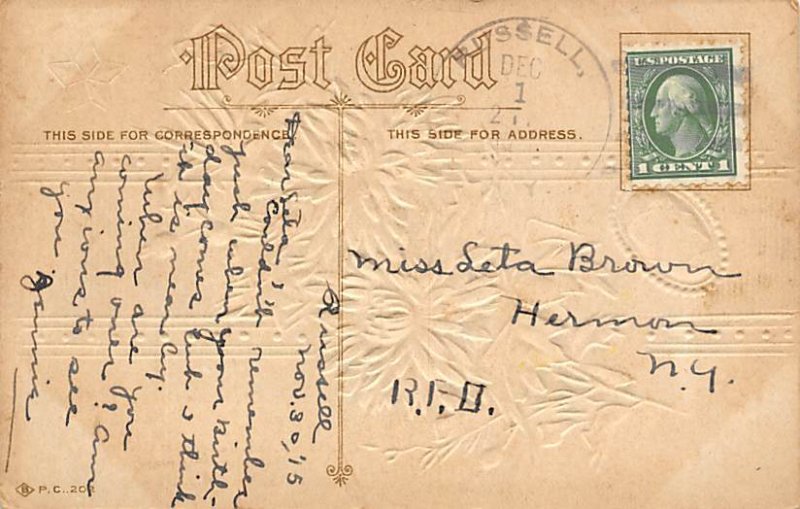 Post Card
THIS SIDE FOR CORRESPONDENCE
THIS SIDE FOR ADDRESS.
RUSSELL,
DEC
1
N.Y.
U.S. POSTAGE
1 CENT 1
Russell
Nov. 30, '15
Dear Leta,
Couldn't remember
just when your birth-
day comes but I think
it is near by.
When are you
coming over? Am
anxious to see
you
Miss Leta Brown
Hermon
N.Y.
R.F.D.
B P.C. 202